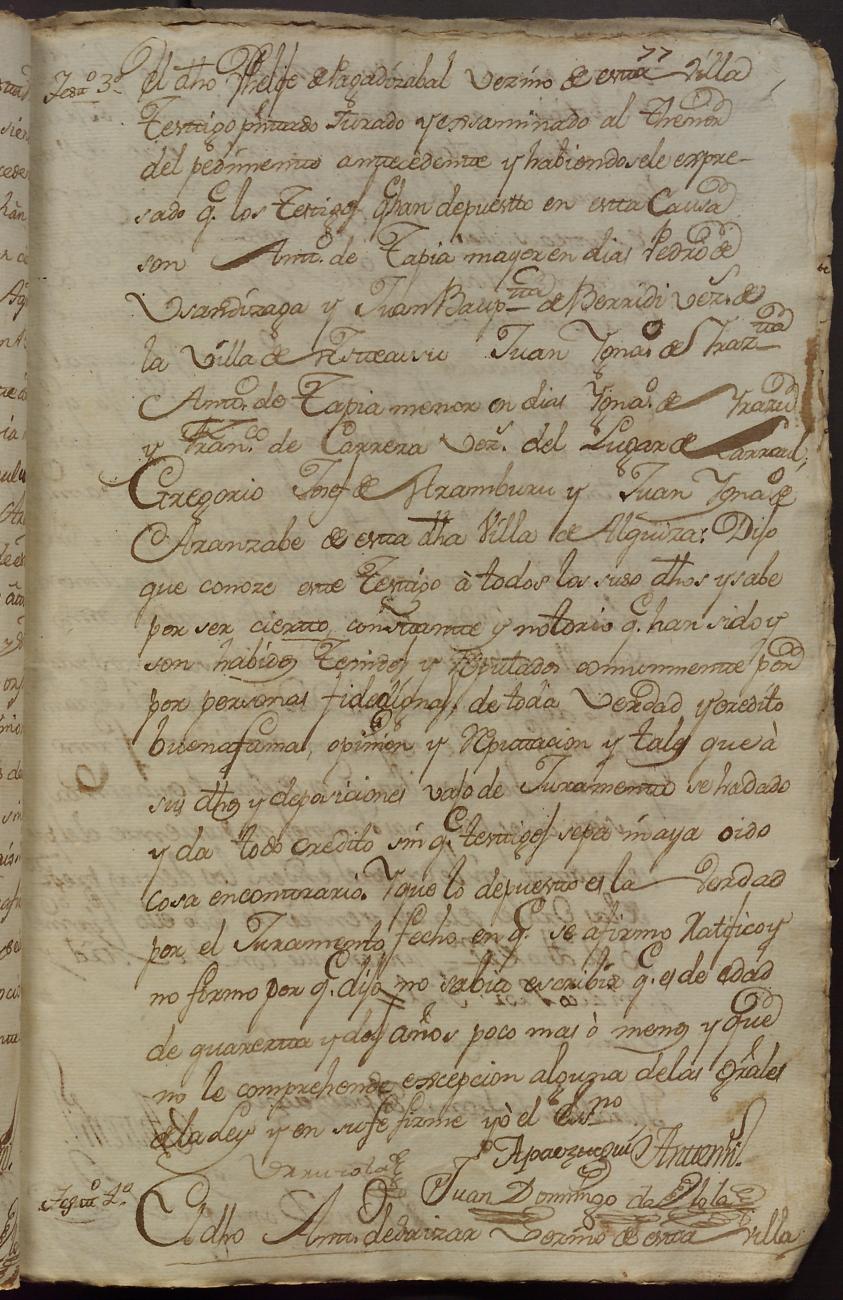 77
Testo 3º El dho Phelipe de Pagadizabal vezino de esta Villa
Testigo pntado Jurado y exsaminado al thenor
del pedimento antezedente y habiendosele expre-
sado q.e los testigos q.e han depuestto en esta Causa
son Antt.o de Tapia mayor en dias Pedro de
Usandizaga y Juan Baup.tta de Berridi vez.s de
la Villa de Asteasu Juan Ygna.o de
Antt.o de Tapia menor en dias Ygna.o de
y Fran.co de Carrera vez.s del Lugar de Larraul,
Gregorio Josef de Aramburu y Juan Ygna.o de
Aranzabe de esta dha Villa de Alquiza: Dijo
que conoze este Testigo à todos los suso dhos y sabe
por ser cierto, constante y notorio q.e han sido y
son habidos tenidos y Reputados comunmente por
por personas fidedignas, de toda verdad y credito
buena fama, opinion y Reputtacion y tales que à
sus dhos y deposiciones vajo de Juramento se ha dado
y da todo credito sin q.e el testigo sepa ni aya oido
cosa en contrario. Y que lo depuesto es la verdad
por el Juramento fecho en q.e se afirmo Ratifico y
no firmo por q.e dijo no sabia escribir q.e es de edad
de quarenta y dos años poco mas ò menos y que
no le comprehende excepcion alguna de las Grâles
de la Ley y en su fe firme yò el Ess.no
Antemi.
Juan Domingo de
Testo 4º El dho Antt.o de vezino de esta Villa